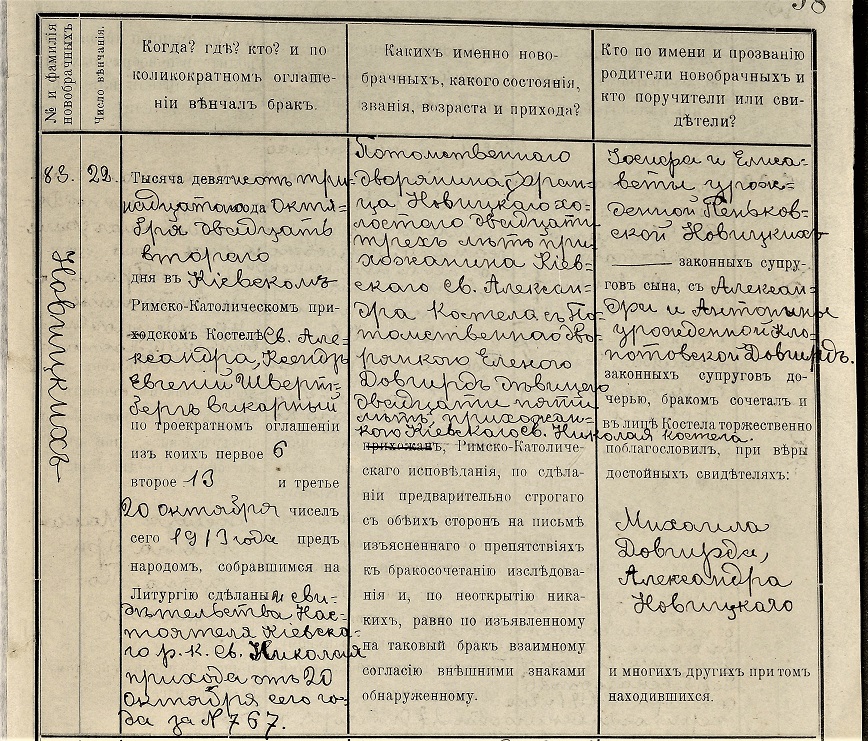 58
№ и фамилія новобрачныхъ
Число вѣнчанія.
Когда? гдѣ? кто? и по
коликократномъ оглаше-
ніи вѣнчалъ бракъ.
Какихъ именно ново-
брачныхъ, какого состоянія,
званія, возраста и прихода?
Кто по имени и прозванію
родители новобрачныхъ и
кто поручители или сви-
дѣтели?
83.
Новицкихъ
22.
Тысяча девятьсотъ три-
надцатого года Октя-
бря двадцать
второго
дня въ Кіевскомъ
Римско-Католическомъ при-
ходскомъ Костелѣ Св. Але-
ксандра, Ксендзъ
Евгеній Шверт-
бергъ викарный
по троекратномъ оглашеніи
изъ коихъ первое 6
второе 13 и третье
20 октября чиселъ
сего 1913 года предъ
народомъ, собравшимся на
Литургію сдѣланый и сви-
дѣтельства Нас-
тоятеля Кіевска-
го р.-к. Св. Николая
прихода отъ 20
октября сего го-
да за № 767.
Потомственнаго
дворянина Фран-
ца Новицкаго хо-
лостого двадцати
трехъ лѣтъ при-
хожанина Кіев-
скаго Св. Алексан-
дра костела съ По-
томственною дво-
рянкою Еленою
Довгирдъ дѣвицею
двадцати пяти
лѣтъ, прихожан-
кою Кіевскаго Св. Николая костела.
прихожанъ, Римско-Католиче-
скаго исповѣданія, по сдѣла-
ніи предварительно строгаго
съ обѣихъ сторонъ на письмѣ
изъясненнаго о препятствіяхъ
къ бракосочетанію изслѣдова-
нія и, по неоткрытію ника-
кихъ, равно по изъявленному
на таковый бракъ взаимному
согласію внѣшними знаками
обнаруженному.
Іосифа и Елиса-
веты урож-
денной Пеньков-
ской Новицкихъ
законныхъ супру-
говъ сына, съ Алексан-
дра и Антонины
урожденной Кло-
потовской Довгирдъ.
законныхъ супруговъ до-
черью, бракомъ сочеталъ и
въ лицѣ Костела торжественно
поблагословилъ, при вѣры
достойныхъ свидѣтеляхъ:
Михаила
Довгирда,
Александра
Новицкаго
и многихъ другихъ при томъ
находившихся.